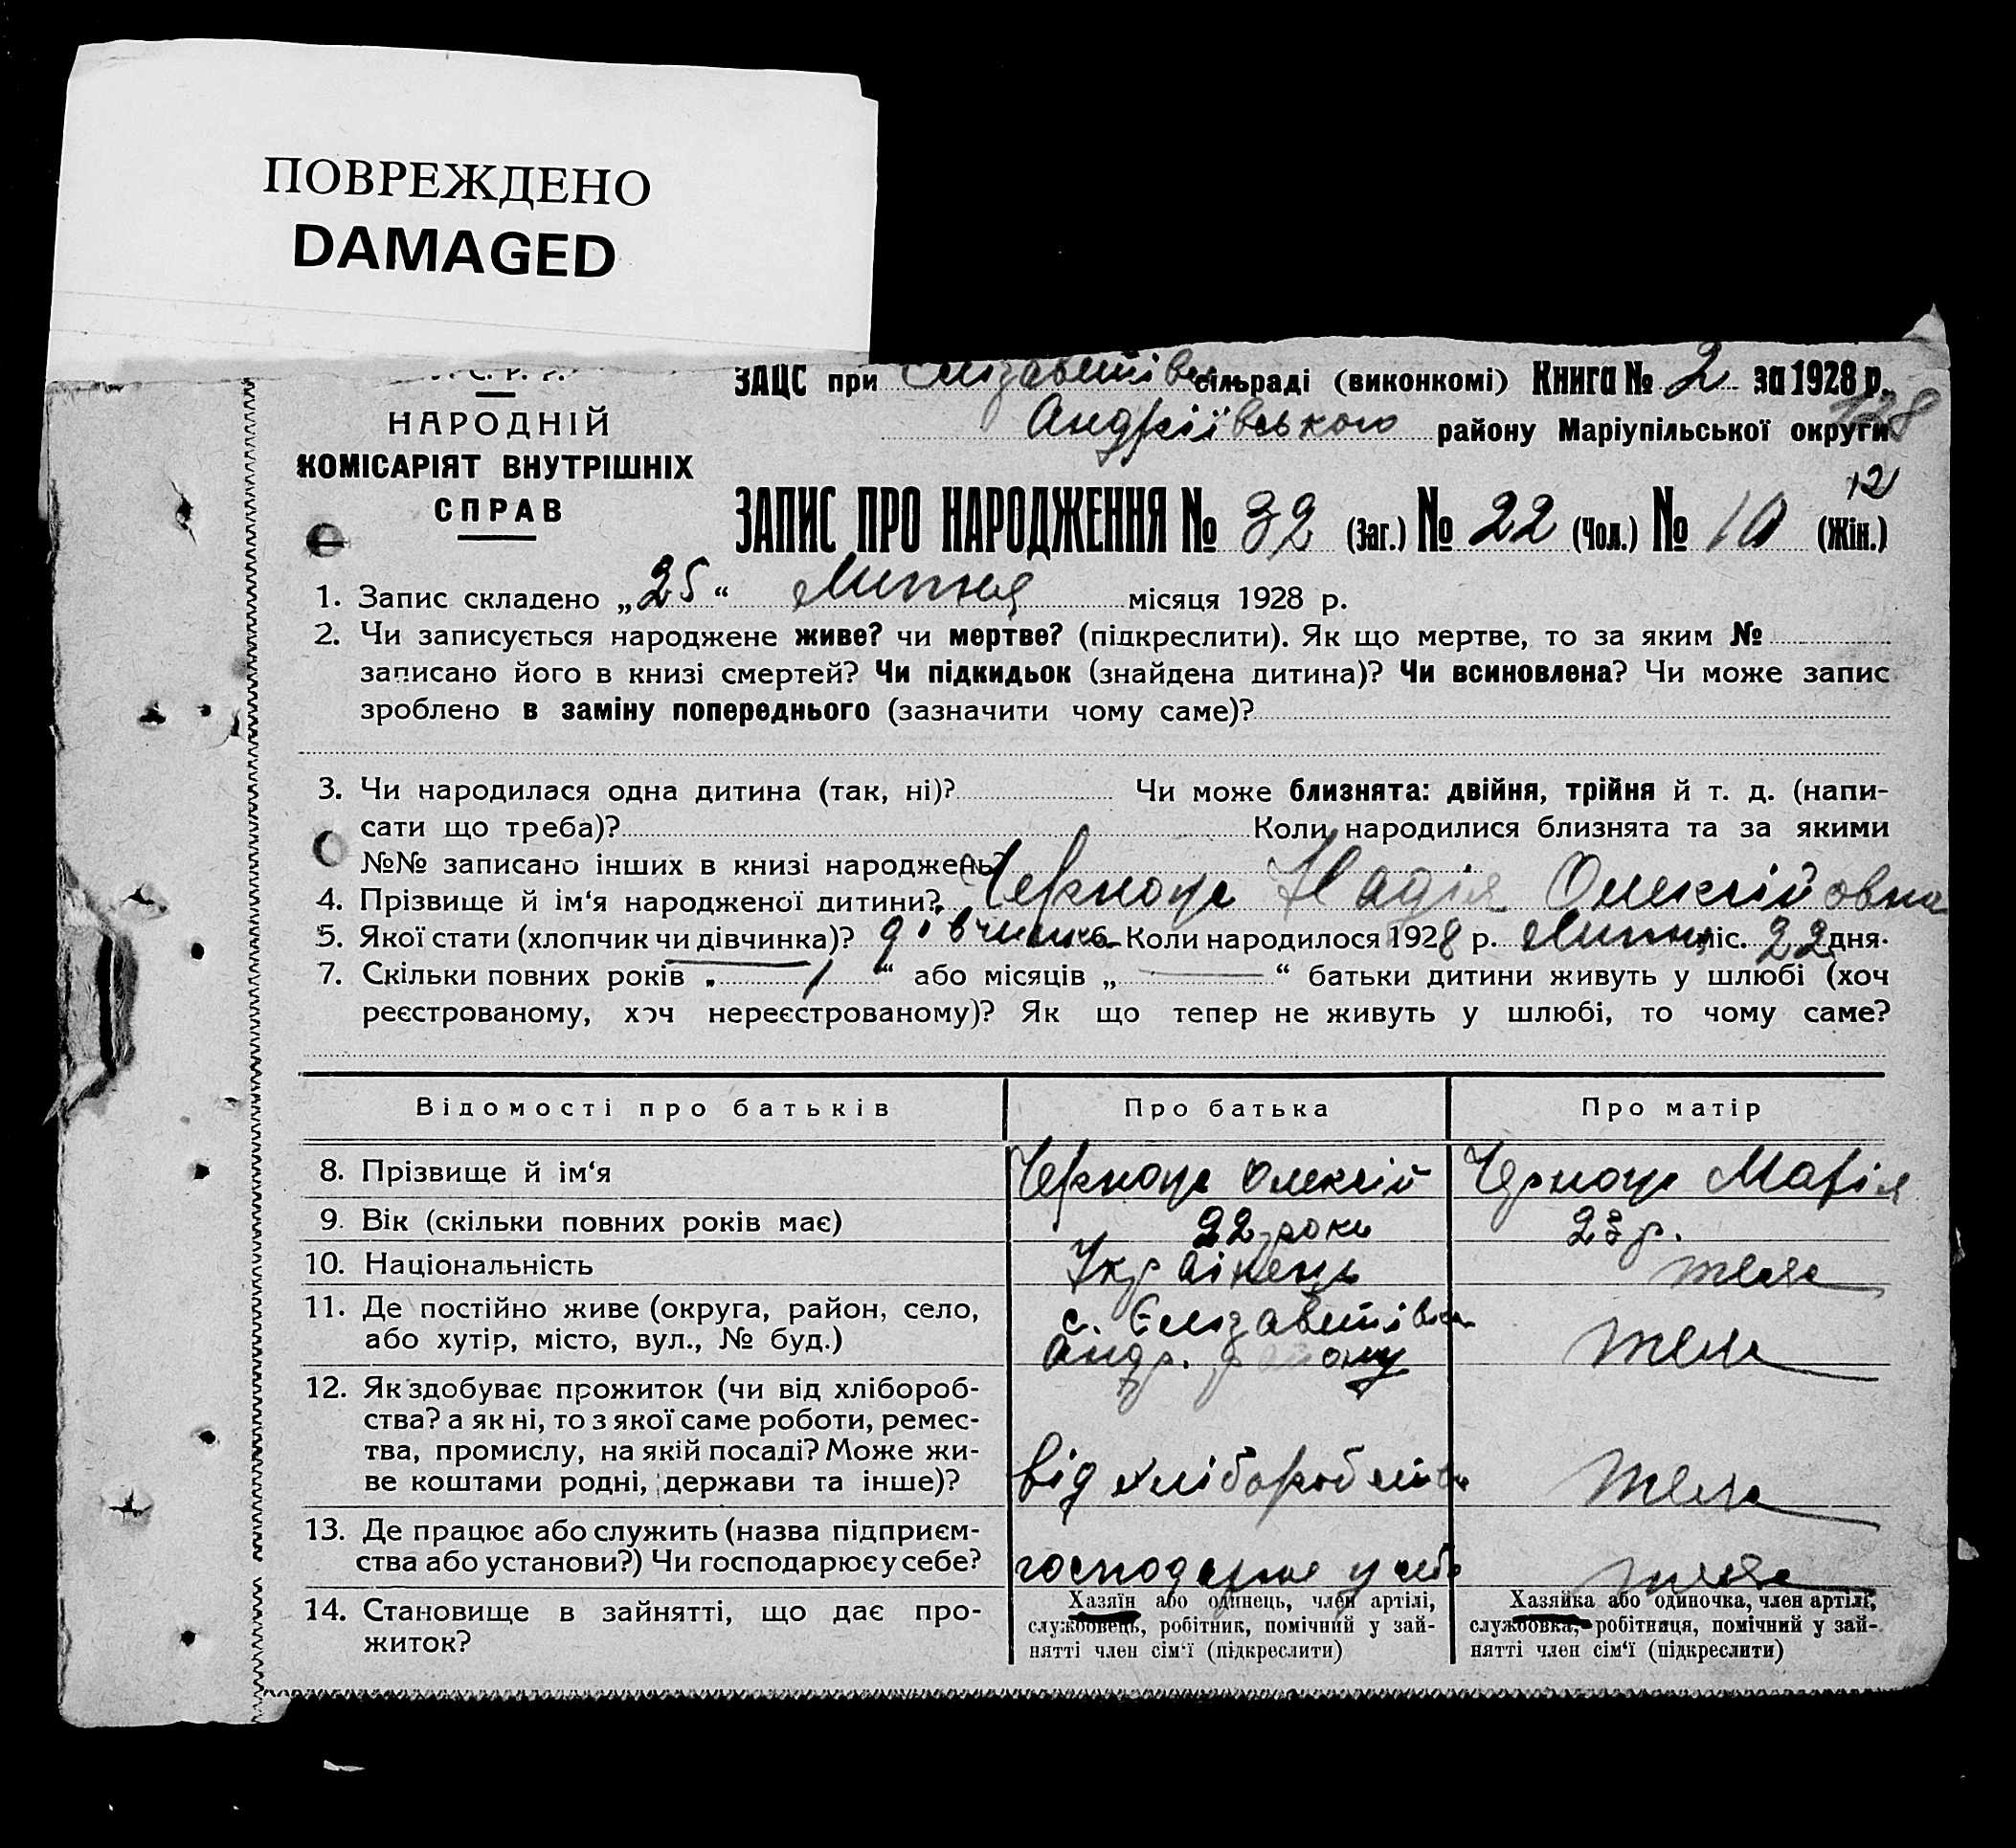 ПОВРЕЖДЕНО
DAMAGED
У. С. Р. Р.
НАРОДНІЙ
КОМІСАРІЯТ ВНУТРІШНІХ
СПРАВ
ЗАЦС при Єлізаветівськ сільраді (виконкомі) Книга № 2 за 1928 р.
128
Андріївського району Маріупільської округи
12
ЗАПИС ПРО НАРОДЖЕННЯ № 32 (Заг.) № 22 (Чол.) № 10 (Жін.)
1. Запис складено „25“ Липня місяця 1928 р.
2. Чи записується народжене живе? чи мертве? (підкреслити). Як що мертве, то за яким №
записано його в книзі смертей? Чи підкидьок (знайдена дитина)? Чи всиновлена? Чи може запис
зроблено в заміну попереднього (зазначити чому саме)?
3. Чи народилася одна дитина (так, ні)? Чи може близнята: двійня, трійня й т. д. (напи-
сати що треба)? Коли народилися близнята та за якими
№№ записано інших в книзі народжень?
4. Прізвище й ім‘я народженої дитини? Надія Олексійовна
5. Якої стати (хлопчик чи дівчинка)? дівчинка 6. Коли народилося 1928 р. Липня міс. 22 дня.
7. Скільки повних років „1“ або місяців „—“ батьки дитини живуть у шлюбі (хоч
реєстрованому, хоч нереєстрованому)? Як що тепер не живуть у шлюбі, то чому саме?
Відомості про батьків Про батька Про матір
8. Прізвище й ім‘я Олексій Марія
9. Вік (скільки повних років має) 22 роки 23 р.
10. Національність Українець теж
11. Де постійно живе (округа, район, село, с. Єлізаветівка
або хутір, місто, вул., № буд.) Андр. району теж
12. Як здобуває прожиток (чи від хлібороб-
ства? а як ні, то з якої саме роботи, ремес-
тва, промислу, на якій посаді? Може жи-
ве коштами родні, держави та інше)? від хліборобства теж
13. Де працює або служить (назва підприєм-
ства або установи?) Чи господарює у себе? господарює у себе теж
14. Становище в зайнятті, що дає про-
житок?
Хазяїн або одинець, член артілі,
службовець, робітник, помічний у зай-
нятті член сім‘ї (підкреслити)
Хазяйка або одиночка, член артілі,
службовка, робітниця, помічний у зай-
нятті член сім‘ї (підкреслити)